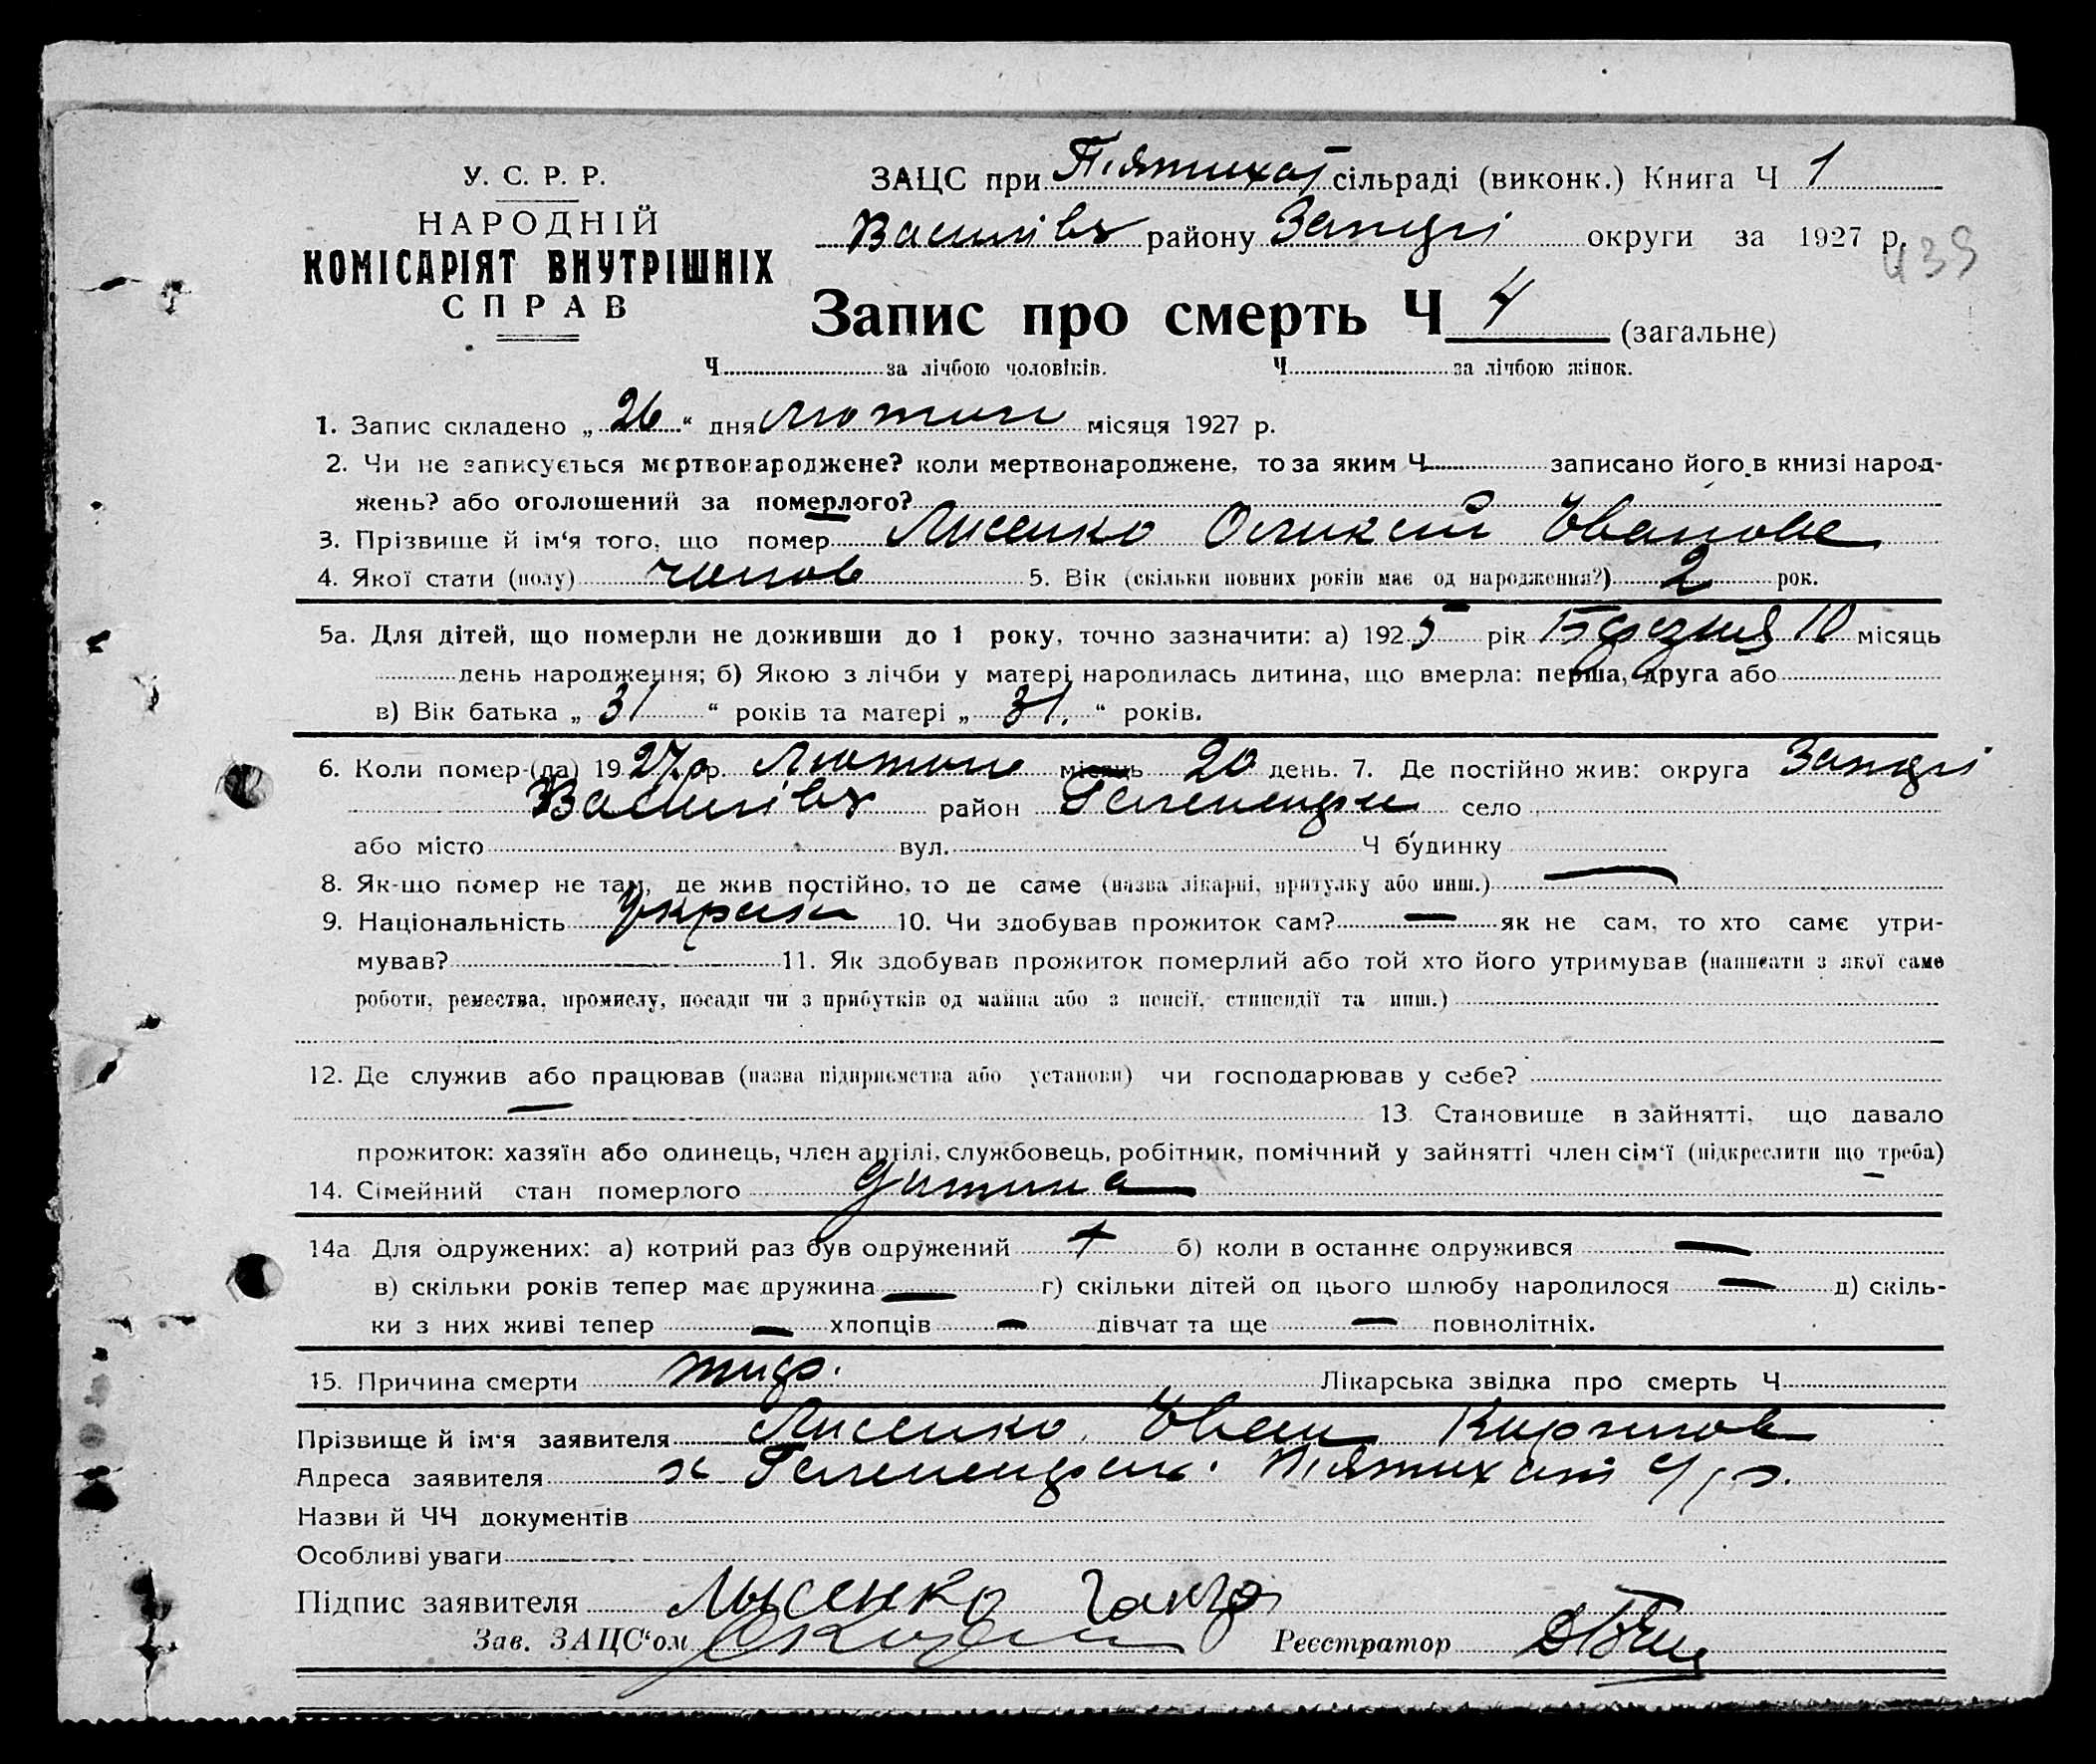 У. С. Р. Р.
НАРОДНІЙ
КОМІСАРІЯТ ВНУТРІШНІХ
СПРАВ
ЗАЦС при П'ятихат сільраді (виконк.) Книга Ч 1
Василівс району Запоріз округи за 1927 р.
439
Запис про смерть Ч 4 (загальне)
Ч за лічбою чоловіків. Ч за лічбою жінок.
1. Запис складено „ 26 “ дня лютого місяця 1927 р.
2. Чи не записується мертвонароджене? коли мертвонароджене, то за яким Ч записано його в книзі народ-
жень? або оголошений за померлого?
3. Прізвище й ім'я того, що помер Лисенко Оликсій Іванове
4. Якої стати (полу) чолов 5. Вік (скільки повних років має од народження?) 2 рок.
5а. Для дітей, що померли не доживши до 1 року, точно зазначити: а) 1925 рік Березня 10 місяць
день народження; б) Якою з лічби у матері народилась дитина, що вмерла: перша, друга або
в) Вік батька „ 31 “ років та матері „ 31. “ років.
6. Коли помер-(ла) 1927 р. Лютого місяць 20 день. 7. Де постійно жив: округа
Василівс район село
або місто вул. Ч будинку
8. Як-що помер не там, де жив постійно, то де саме (назва лікарні, притулку або инш.) —
9. Національність україн 10. Чи здобував прожиток сам? — як не сам, то хто саме утри-
мував? 11. Як здобував прожиток померлий або той хто його утримував (написати з якої саме
роботи, ремества, промислу, посади чи з прибутків од майна або з пенсії, стипендії та инш.)
12. Де служив або працював (назва підприємства або установи) чи господарював у себе?
— 13. Становище в зайнятті, що давало
прожиток: хазяїн або одинець, член артілі, службовець, робітник, помічний у зайнятті член сім'ї (підкреслити що треба)
14. Сімейний стан померлого дитина
14а Для одружених: а) котрий раз був одружений б) коли в останнє одружився —
в) скільки років тепер має дружина — г) скільки дітей од цього шлюбу народилося — д) скіль-
ки з них живі тепер — хлопців — дівчат та ще — повнолітніх.
15. Причина смерти тиф. Лікарська звідка про смерть Ч
Прізвище й ім'я заявителя Лисенко Іван Кирилов
Адреса заявителя х П'ятихат с/р.
Назви й ЧЧ документів
Особливі уваги
Підпис заявителя Лысенко
Зав. ЗАЦС'ом Реєстратор